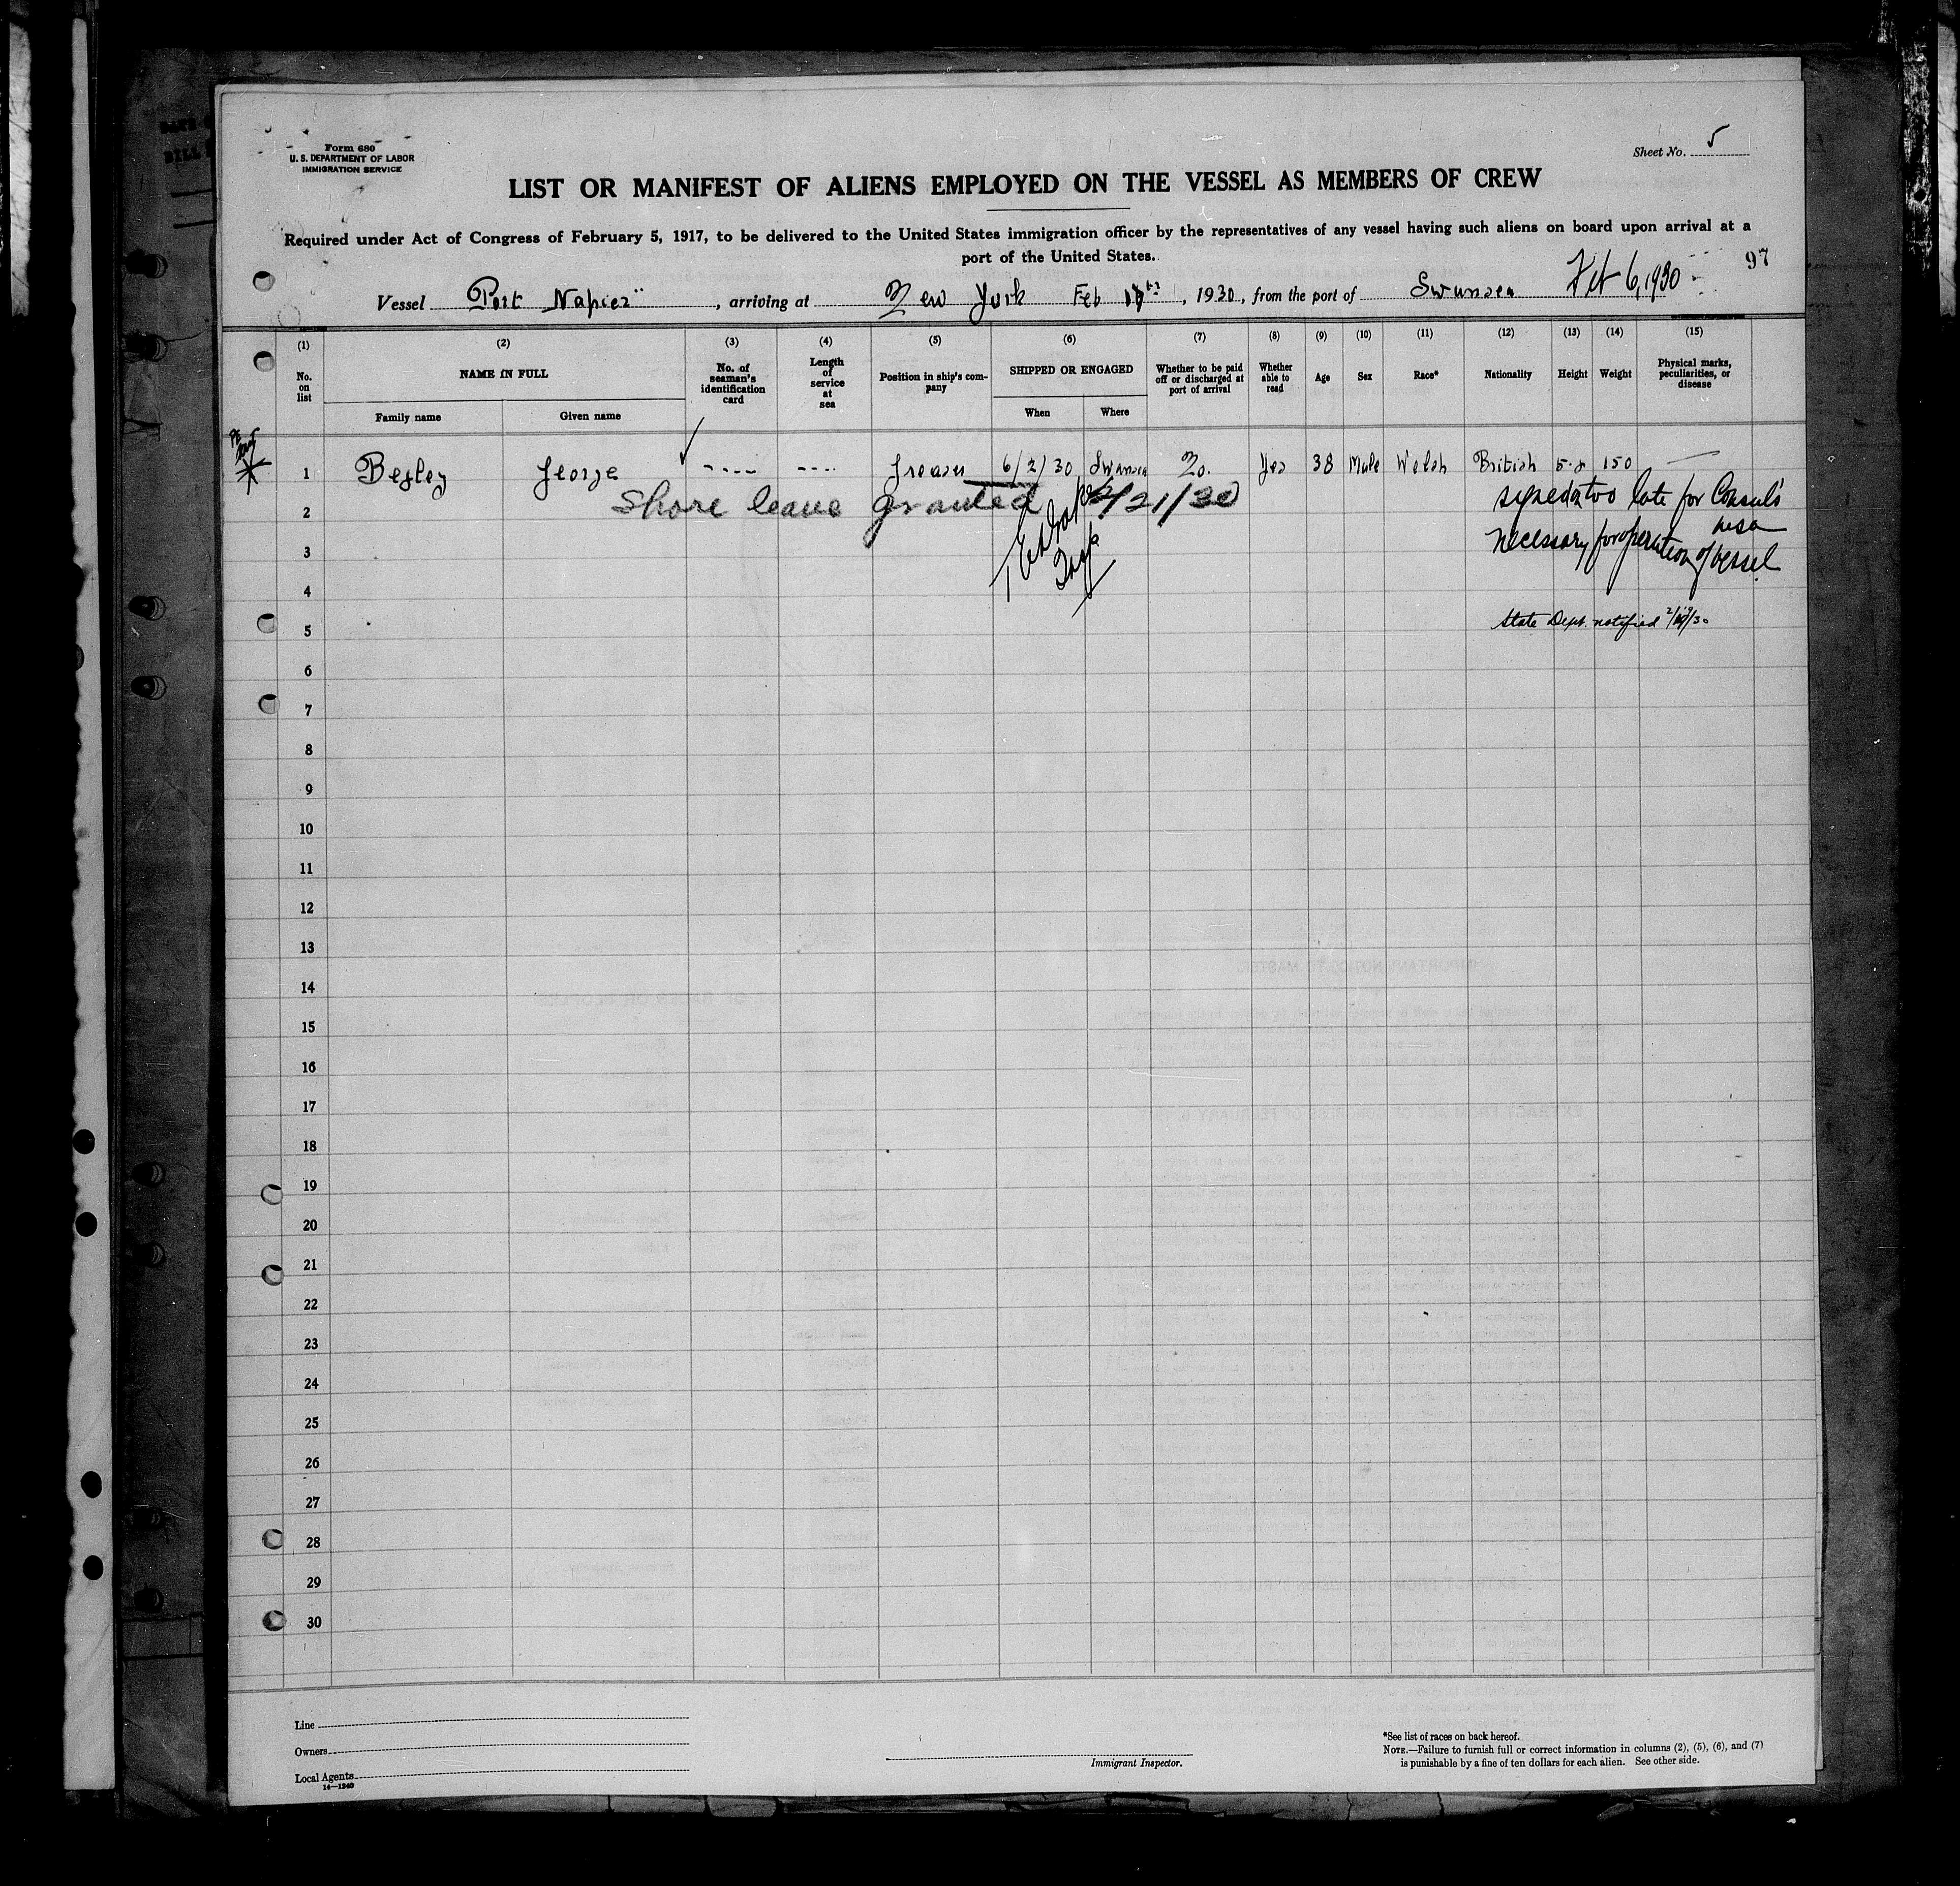 Form 680
U. S. DEPARTMENT OF LABOR
IMMIGRATION SERVICE
Sheet No. 5
LIST OR MANIFEST OF ALIENS EMPLOYED ON THE VESSEL AS MEMBERS OF CREW
Required under Act of Congress of February 5, 1917, to be delivered to the United States immigration officer by the representatives of any vessel having such aliens on board upon arrival at a
port of the United States.
97
Vessel Port Napier", arriving at New York Feb , 1930, from the port of Swansea Feb 6, 1930
(1) (2) (3) (4) (5) (6) (7) (8) (9) (10) (11) (12) (13) (14) (15)
No. on list NAME IN FULL No. of seaman's identification card Length of service at sea Position in ship's company SHIPPED OR ENGAGED Whether to be paid off or discharged at port of arrival Whether able to read Age Sex Race* Nationality Height Weight Physical marks, peculiarities, or disease
Family name Given name When Where
1 Begley George ---- ---- Greaser 6/2/30 Swansea No. Yes 38 Male Welsh British 5-8 150 —
2 Shore leave granted 2/21/30 signed too late for Consul's
visa
3 necessary for operation of vessel
4
5 State Dept. notified
6
7
8
9
10
11
12
13
14
15
16
17
18
19
20
21
22
23
24
25
26
27
28
29
30
Line
Owners
Local Agents
14—1240
Immigrant Inspector.
*See list of races on back hereof.
NOTE.—Failure to furnish full or correct information in columns (2), (5), (6), and (7)
is punishable by a fine of ten dollars for each alien. See other side.